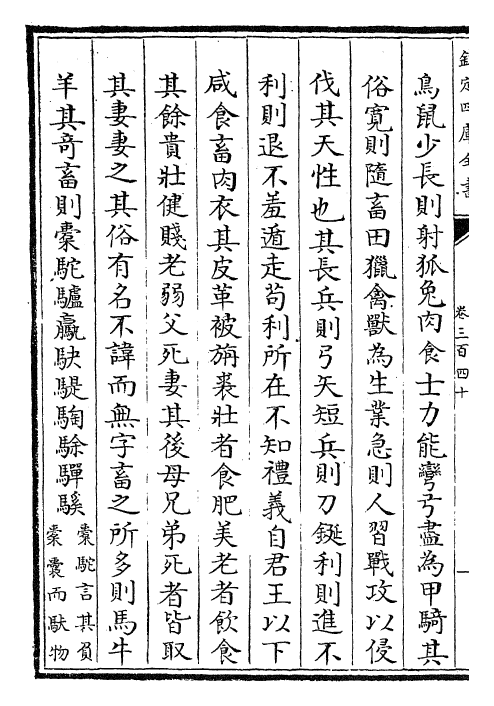 欽定四庫全書
卷三百四十
一
鳥鼠少長則射狐兔肉食士力能彎弓盡為甲騎其
俗寛則隨畜田獵禽獸為生業急則人習戰攻以侵
伐其天性也其長兵則弓矢短兵則刀鋋利則進不
利則退不羞遁走苟利所在不知禮義自君王以下
咸食畜肉衣其皮革被旃裘壯者食肥美老者飲食
其餘貴壯健賤老弱父死妻其後母兄弟死者皆取
其妻妻之其俗有名不諱而無字畜之所多則馬牛
羊其竒畜則橐駝驢驘駃騠騊駼驒騱
橐駝言其負
橐囊而䭾物